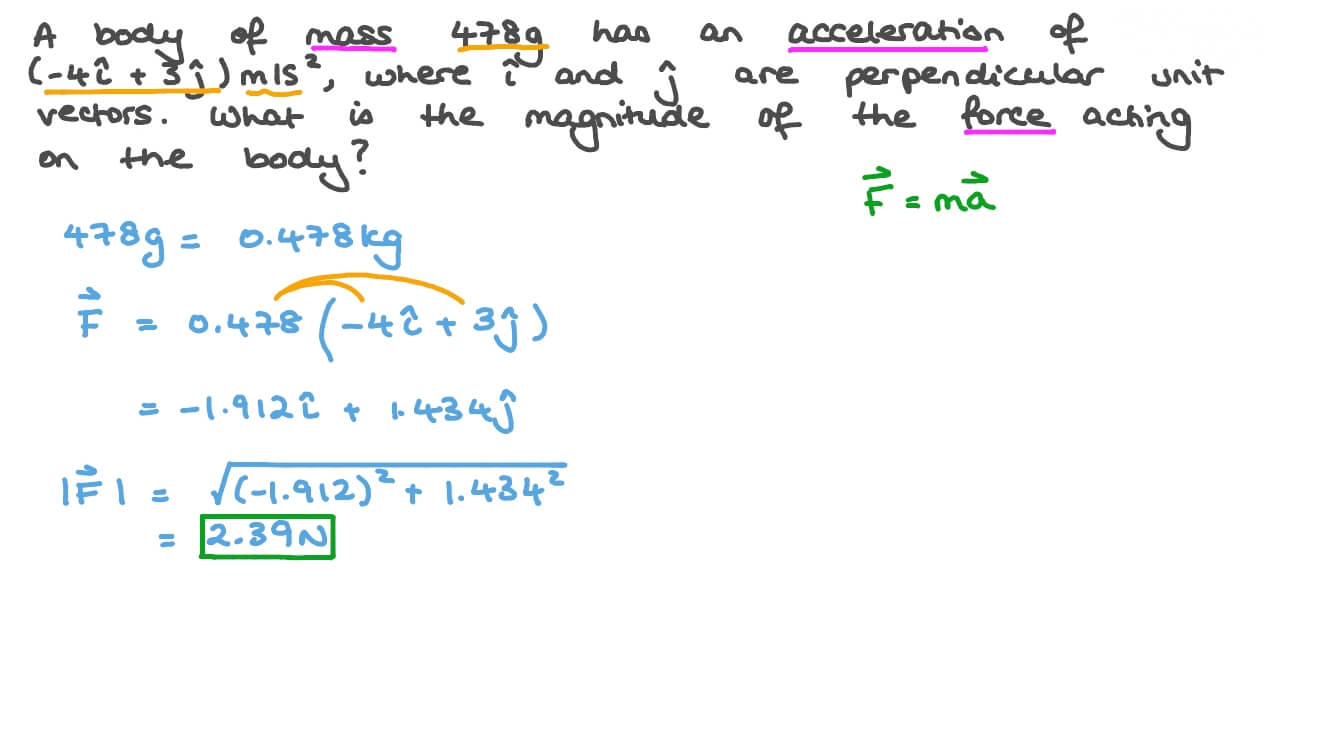 A body of mass 478g has an acceleration of
(-4î + 3ĵ) m/s², where î and ĵ are perpendicular unit
vectors. What is the magnitude of the force acting
on the body?
F⃗ = ma⃗
478g = 0.478kg
F⃗ = 0.478(-4î + 3ĵ)
= -1.912î + 1.434ĵ
|F⃗| = √((-1.912)² + 1.434²)
= 2.39N